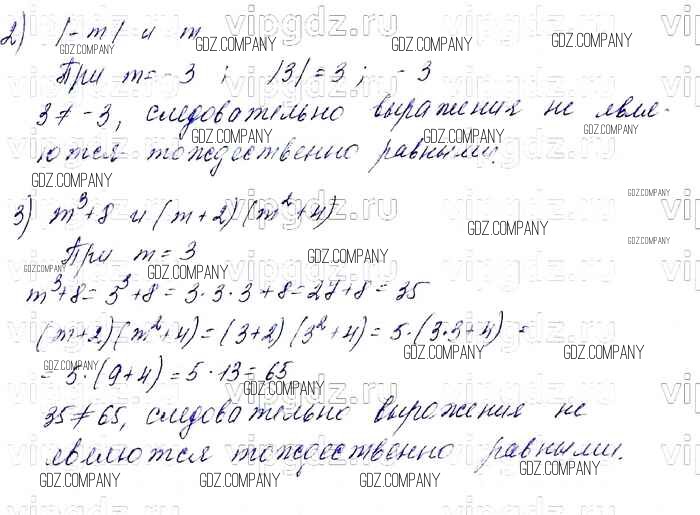 2) |-m| и m
При m=-3 ; |3|=3 ; -3
3≠-3, следовательно выражения не явля-
ются тождественно равными.
3) m³+8 и (m+2)(m²+4)
При m=3
m³+8=3³+8=3·3·3+8=27+8=35
(m+2)(m²+4)=(3+2)(3²+4)=5·(3·3+4)=
=5·(9+4)=5·13=65
35≠65, следовательно выражения не
являются тождественно равными.
vipgdz.ru
GDZ.COMPANY